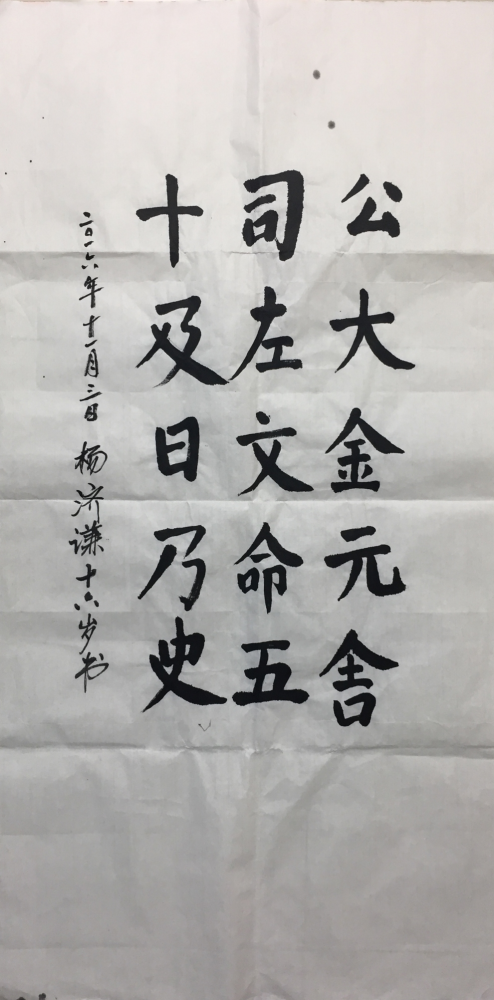 公大金元舍
司左文命五
十及日乃史
二〇一六年十一月三日 杨济谦十六岁书